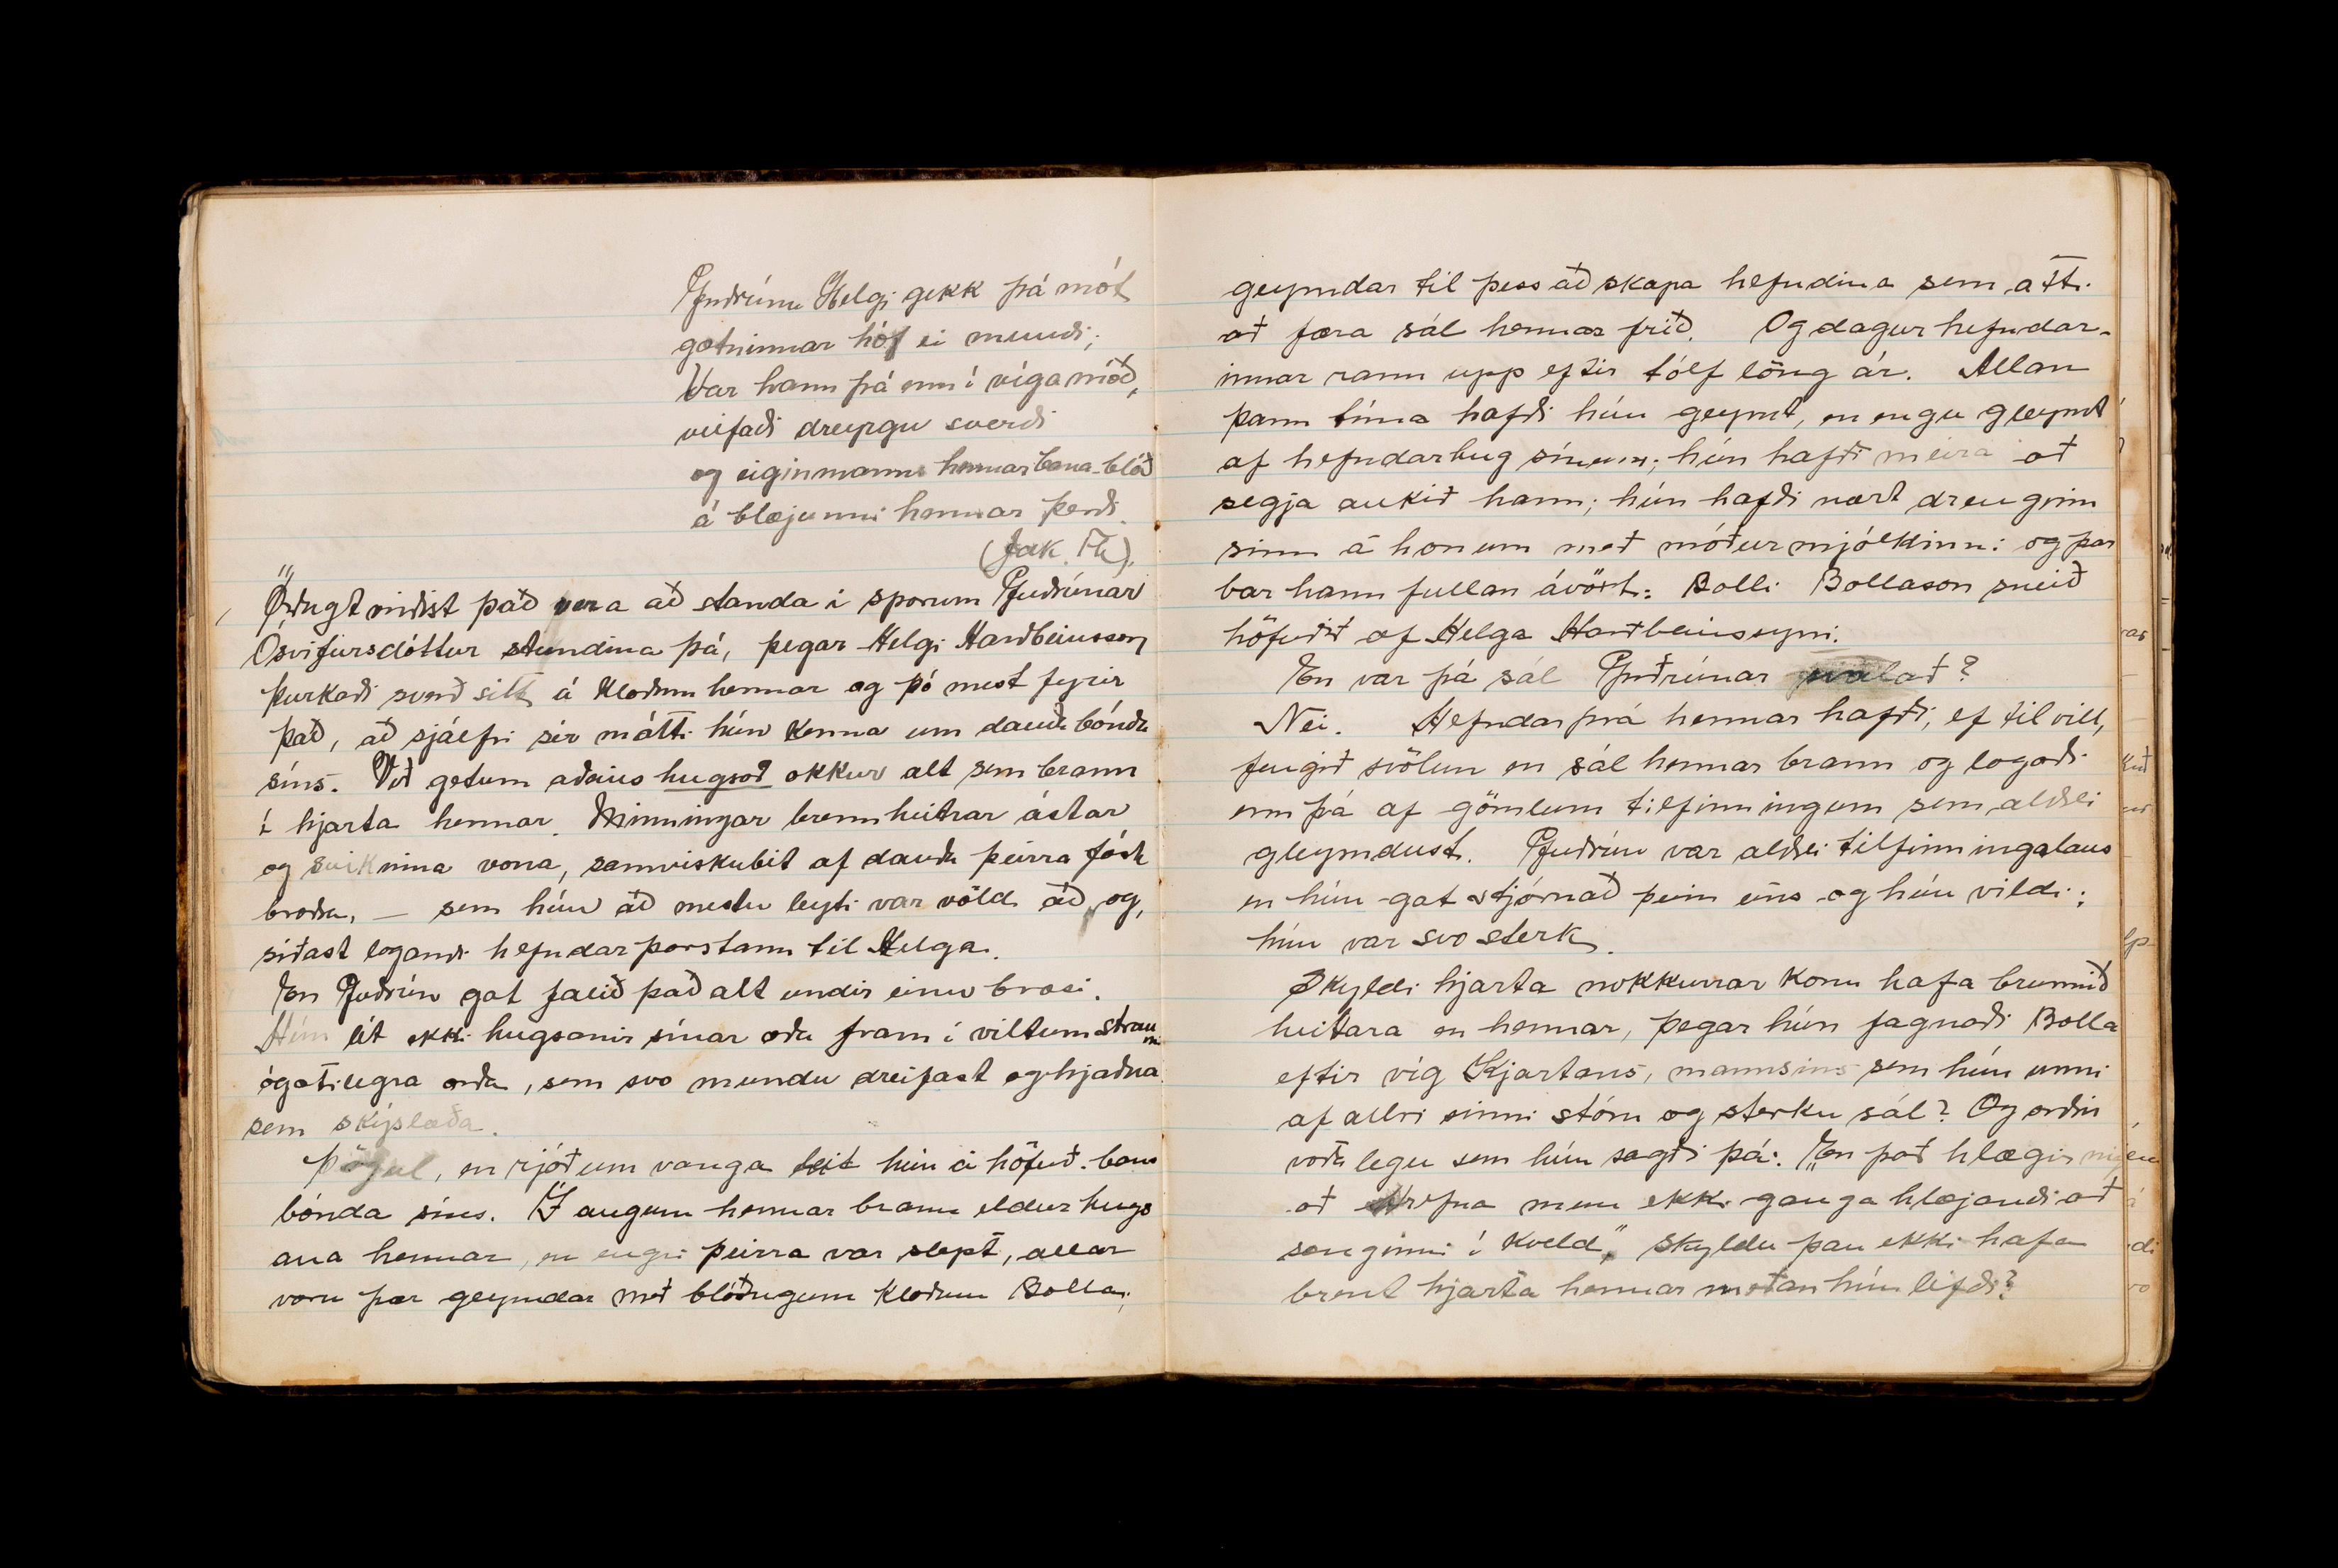 Guðrúnu Helgi gekk þá mót
gætninnar hóf ei mundi;
Var hann þá enn í vígamóð,
veifaði dreyrgu sverði
og eiginmanns hennar bana-blóð
á blæjunni hennar þerði.
(Jak. Th).
Örðugt virðist það vera að standa í sporum Guðrúnar
Ósvífursdóttur stundina þá, þegar Helgi Harðbeinsson
þurkaði sverð sitt á klæðum hennar og þó mest fyrir
það, að sjálfri sér mátti hún kenna um dauða bónda
síns. Við getum aðeins hugsað okkur alt sem brann
í hjarta hennar. Minningar brennheitrar ástar
og svikinna vona, samviskubit af dauða þeirra fóst
bræðra, — sem hún að mestu leyti var völd að, og,
síðast logandi hefndarþorstann til Helga.
En Guðrún gat falið það alt undir einu brosi.
Hún lét ekki hugsanir sínar æða fram í viltum strau
mi
ógætilegra orða, sem svo mundu dreifast og hjaðna
sem skýslæða.
Þögul, en rjóð um vanga leit hún á höfuð-bana
bónda síns. Í augum hennar brann eldur hugs
ana hennar, en engri þeirra var slept, allar
voru þær geymdar með blóðugum klæðum Bolla,
geymdar til þess að skapa hefndina sem átti
að færa sál hennar frið. Og dagur hefndar-
innar rann upp eftir tólf löng ár. Allan
þann tíma hafði hún geymt, en engu gleymt
af hefndarhug sínum; hún hafði meira að
segja aukið hann; hún hafði nært drenginn
sinn á honum með móðurmjólkinni og þar
bar hann fullan ávöxt: Bolli Bollason sneið
höfuðið af Helga Harðbeinssyni.
En var þá sál Guðrúnar svalað?
Nei. Hefndarþrá hennar hafði, ef til vill,
fengið svölun en sál hennar brann og logaði
enn þá af gömlum tilfinningum sem aldrei
gleymdust. Guðrún var aldrei tilfinningalaus
en hún gat stjórnað þeim eins og hún vildi;
hún var svo sterk.
Skyldi hjarta nokkurrar konu hafa brunnið
heitara en hennar, þegar hún fagnaði Bolla
eftir víg Kjartans, mannsins sem hún unni
af allri sinni stóru og sterku sál? Og orðin
voðalegu sem hún sagði þá: "En það hlægir mig
að Hrefna mun ekki ganga hlæjandi að
sænginni í kveld", skyldu þau ekki hafa
brent hjarta hennar meðan hún lifði?